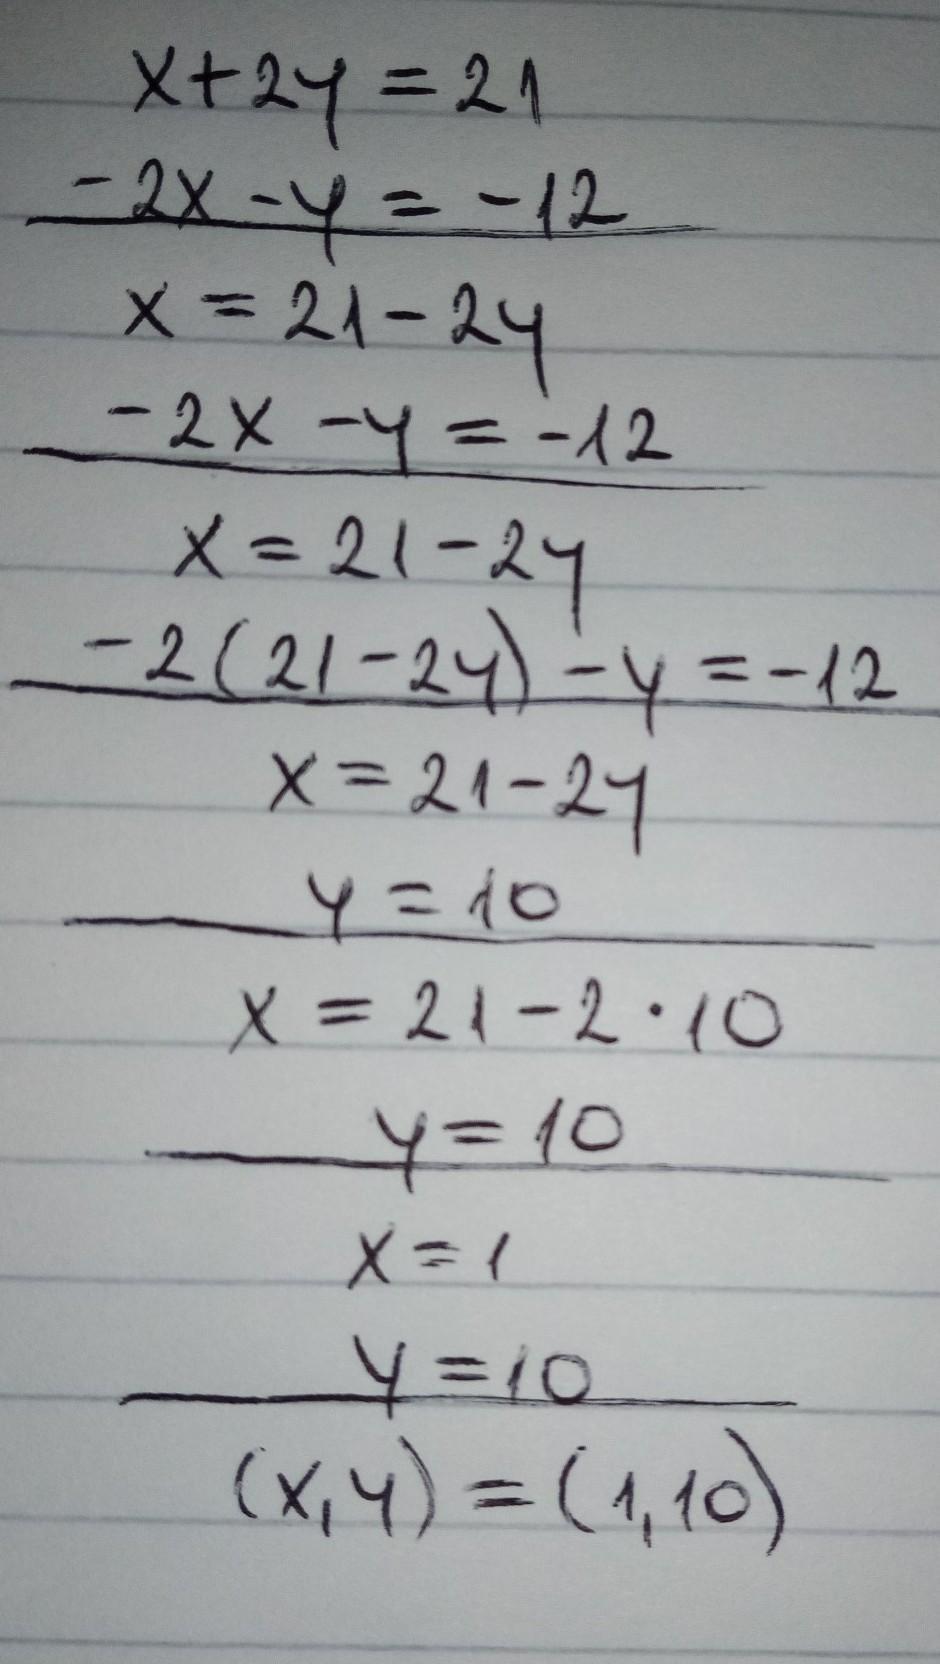 x+2y=21
-2x-y=-12
x=21-2y
-2x-y=-12
x=21-2y
-2(21-2y)-y=-12
x=21-2y
y=10
x=21-2·10
y=10
x=1
y=10
(x,y)=(1,10)